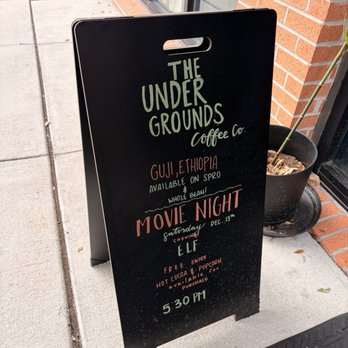 THE
UNDER
GROUNDS
Coffee Co
GUJI, ETHIOPIA
AVAILABLE ON SPRO
&
WHOLE BEAN!
MOVIE NIGHT
Saturday DEC. 13th
ELF
FREE ENTRY
HOT COCOA & POPCORN
AVAILABLE FOR
PURCHASE
5:30 PM